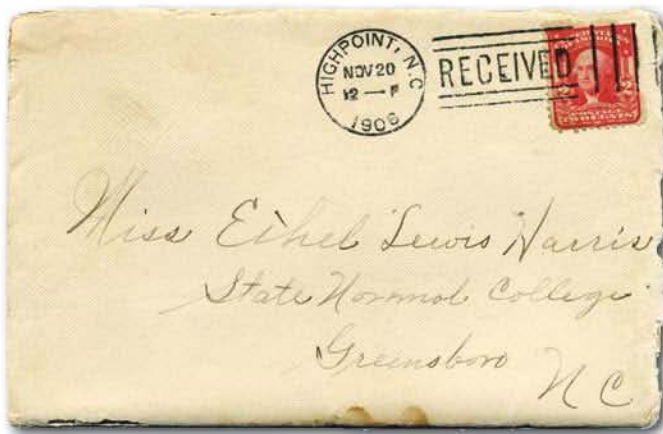 HIGHPOINT, N.C
NOV 20
12 — P
1906
RECEIVED
2 2
POSTAGE
TWO CENTS
Miss Ethel Lewis Harris
State Normal College
Greensboro
N C